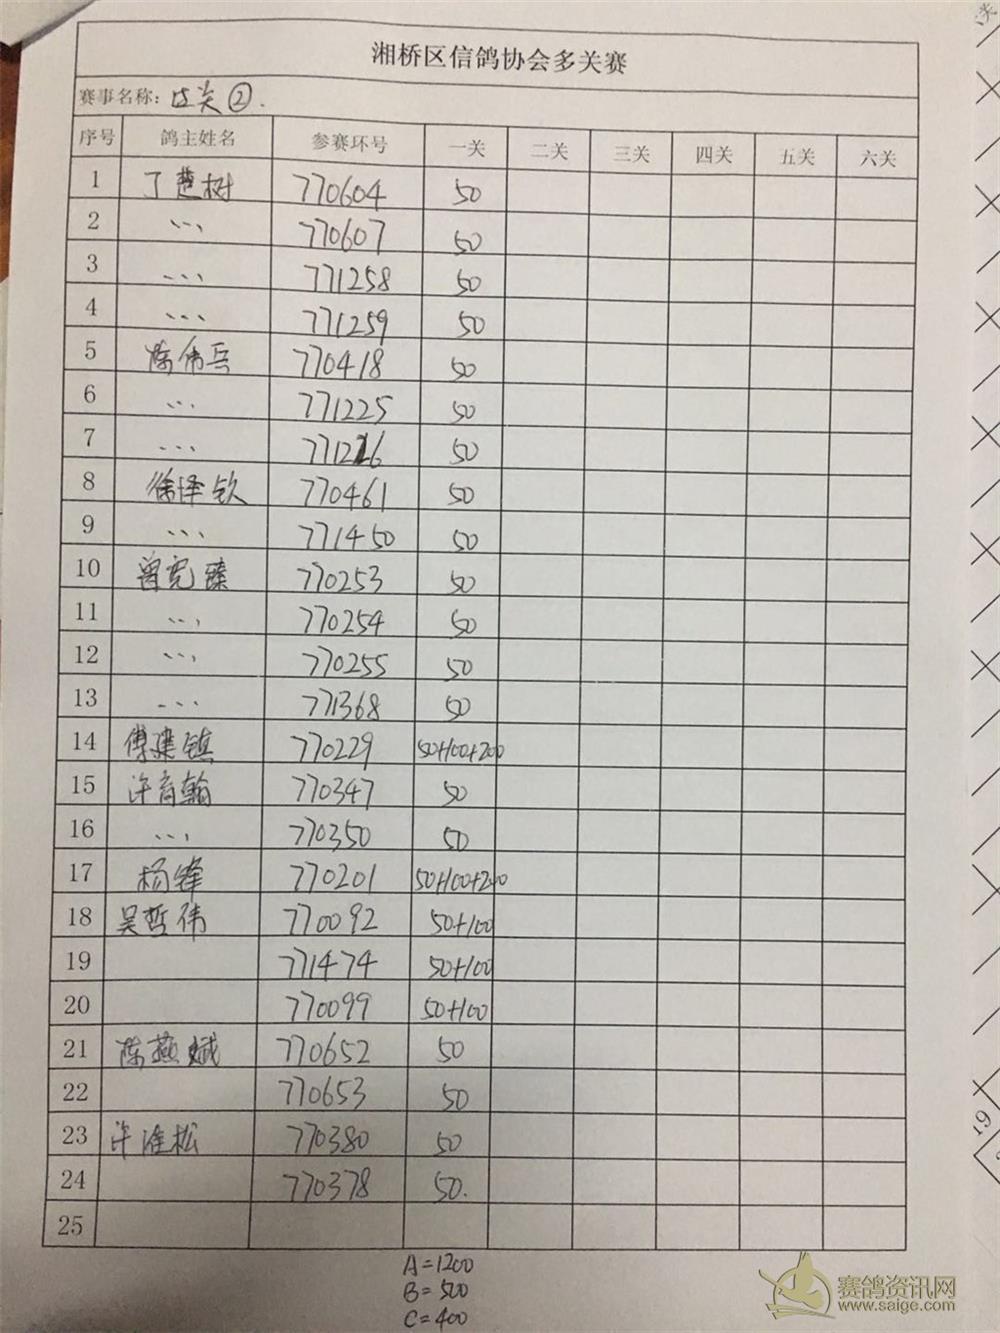 湘桥区信鸽协会多关赛
赛事名称: 过关②.
序号 鸽主姓名 参赛环号 一关 二关 三关 四关 五关 六关
1 丁楚树 770604 50
2 、、, 770607 50
3 、、, 771258 50
4 、、、 771259 50
5 陈伟兵 770418 50
6 、、、 771225 50
7 、、、 771226 50
8 徐泽钦 770461 50
9 、、, 771450 50
10 曾宪臻 770253 50
11 、、, 770254 50
12 、、, 770255 50
13 、、、 771368 50
14 傅建镇 770229 50+100+200
15 许育翰 770347 50
16 、、, 770350 50
17 杨锋 770201 50+100+200
18 吴哲伟 770092 50+100
19 771474 50+100
20 770099 50+100
21 陈燕斌 770652 50
22 770653 50
23 许淮松 770380 50
24 770378 50.
25
A=1200
B=500
C=400
赛鸽资讯网
www.saige.com
19